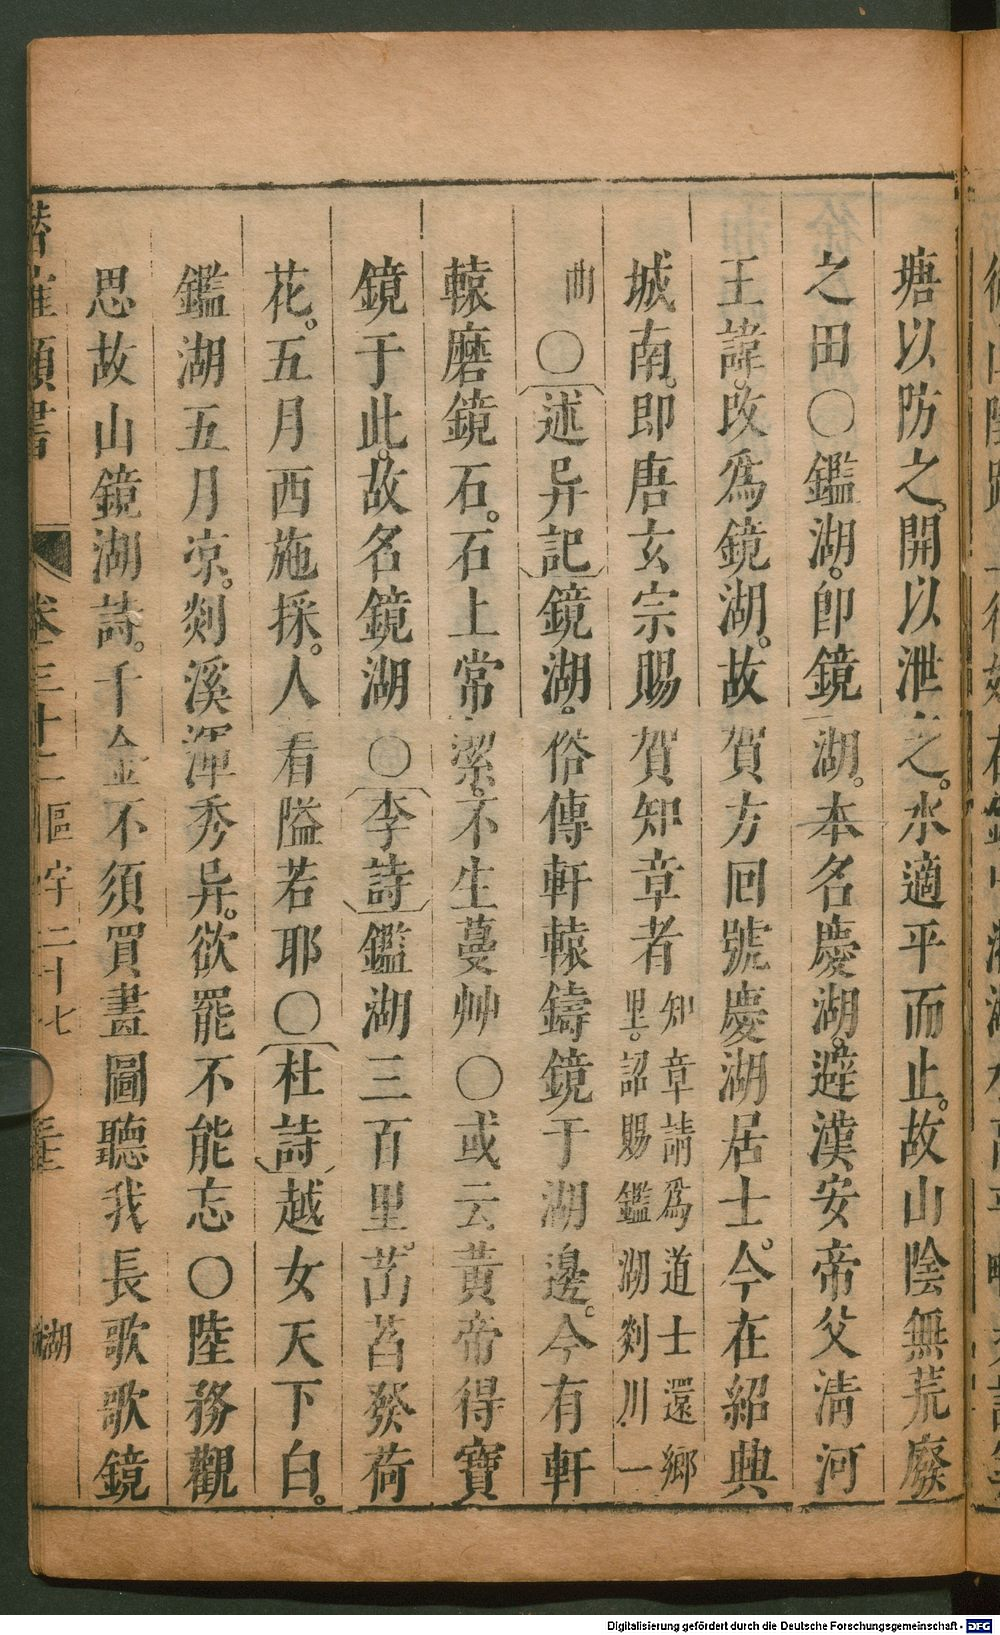 塘以防之。開以泄之。水適平而止。故山陰無荒廢
之田〇鑑湖。卽鏡湖。本名慶湖。避漢安帝父清河
王諱。改爲鏡湖。故賀方回號慶湖居士。今在紹興
城南。即唐玄宗賜賀知章者知章請爲道士還鄉
里。詔賜鑑湖剡川一
曲〇述异記鏡湖。俗傳軒轅鑄鏡于湖邊。今有軒
轅磨鏡石。石上常潔。不生蔓艸〇或云黃帝得寶
鏡于此。故名鏡湖〇李詩鑑湖三百里。菡萏發荷
花。五月西施採。人看隘若耶〇杜詩越女天下白。
鑑湖五月凉。剡溪渾秀异。欲罷不能忘〇陸務觀
思故山鏡湖詩。千金不須買畫圖聽我長歌歌鏡
潛確類書 卷三十二 區宇二十七 湖
Digitalisierung gefördert durch die Deutsche Forschungsgemeinschaft - DFG